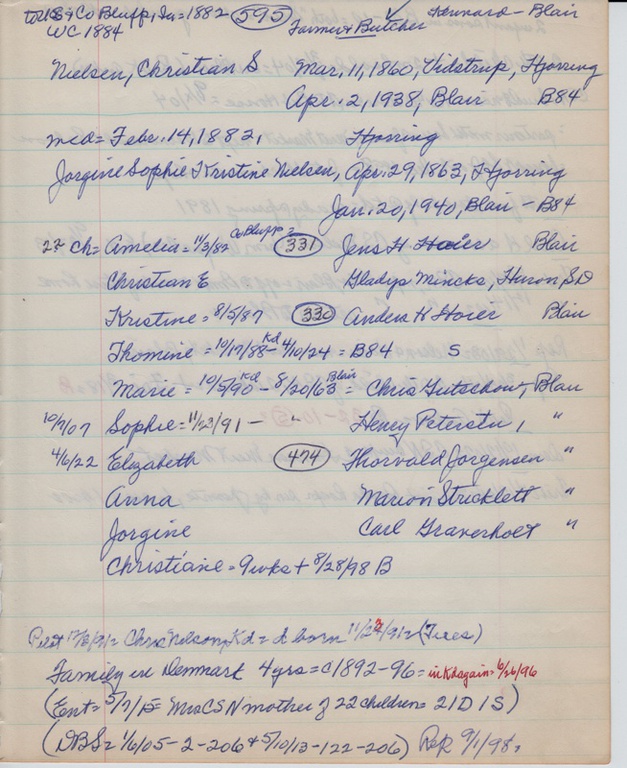 to US & Co Bluff, Ia = 1882 (595) ✓ Kennard - Blair
WC 1884 Farmer & Butcher
Nielsen, Christian S Mar. 11, 1860, Vidstrup, Hjorring
Apr. 2, 1938, Blair B84
md = Febr. 14, 1882, Hjorring
Jorgine Sophie Kristine Nielsen, Apr. 29, 1863, Hjorring
Jan. 20, 1940, Blair - B84
22 ch = Amelia = 11/3/82 Co Bluff = (331) Jens H. Hoier Blair
Christian E Gladys Mincks, Huron, SD
Kristine = 8/5/87 (330) Anders K Hoier Blair
Thomine = 10/17/88 Kd - 4/10/24 = B84 S
Marie = 10/5/90 Kd - 8/20/63 Blair = Chris Gutschow, Blair
10/7/07 Sophie = 11/23/91 - " Henry Petersen, "
4/6/22 Elizabeth (474) Thorvald Jorgensen "
Anna Marion Stricklett "
Jorgine Carl Graverholt "
Christiane = 9 wks + 8/28/98 B
Pilot 12/3/91 = Chris Nelson, Kd = d born 11/23/91 = (Tues)
Family in Denmark 4 yrs = c1892-96 = in Kd again = 6/26/96
(Ent = 5/7/15 = Mrs CS N mother of 22 children = 21 D 1 S)
(DBS = 1/6/05 - 2 - 206 & 5/10/13 - 122 - 206) Rep 9/1/98.